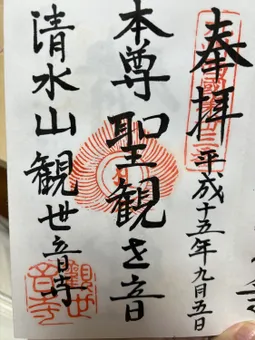 奉拝
平成十五年九月五日
本尊 聖観世音
清水山 観世音寺
観世音寺